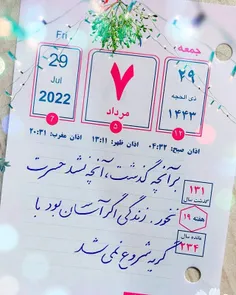 Fri
جمعه
29
Jul
2022
7
۷
مرداد
۵
۲۹
ذی الحجه
۱۴۴۳
۱۲
اذان صبح: ۰۴:۳۲ اذان ظهر: ۱۳:۱۱ اذان مغرب: ۲۰:۳۱
بر آنچه گذشت، آنچه نشد حسرت
نخور. زندگی اگر آسان بود با
گریه شروع نمی شد
۱۳۱
گذشت سال
هفته ۱۹
مانده سال
۲۳۴